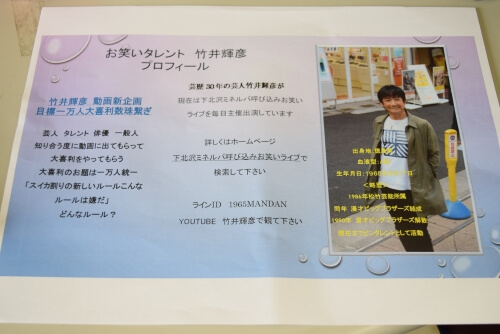 お笑いタレント 竹井輝彦
プロフィール
竹井輝彦 動画新企画
目標一万人大喜利数珠繋ぎ
芸人 タレント 俳優 一般人
知り合う度に動画に出てもらって
大喜利をやってもらう
大喜利のお題は一万人統一
「スイカ割りの新しいルールこんな
ルールは嫌だ」
どんなルール？
芸歴30年の芸人竹井輝彦が
現在は下北沢ミネルバ呼び込みお笑い
ライブを毎日主催出演しています
詳しくはホームページ
下北沢ミネルバ呼び込みお笑いライブで
検索して下さい
ラインID 1965MANDAN
YOUTUBE 竹井輝彦で観て下さい
出身地:
血液型:
生年月日:1965
<略歴>
1986年松竹芸能所属
同年 漫才ビッグブラザーズ結成
1990年 漫才ビッグブラザーズ解散
現在までピンタレントとして活動